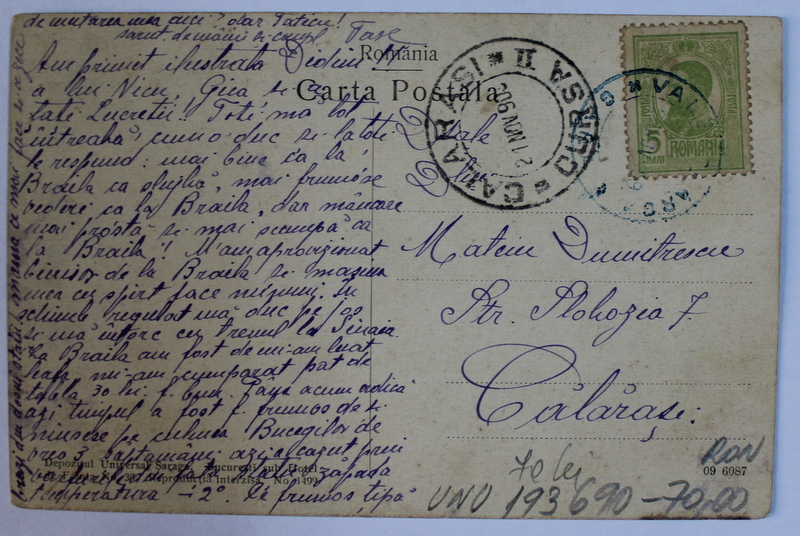 de mutarea mea aici? dar Taticu!
sărut. de mâini și
România
Carta Poștală
Am primit ilustrata Vedini
a lui Nicu, Gica și a
tatei Lucreții! Toți mă tot
întreabă cum o duc și la toți
le răspund: mai bine ca la
Brăila ca slujbă, mai frumoase
vederi ca la Brăila, dar mâncare
mai proastă și mai scumpă ca
la Brăila! M'am aprovizionat
binișor de la Brăila și mașina
mea cu spirt face minuni. În
schimb regulat mă duc pe jos
și mă întorc cu trenul la Sinaia.
La Brăila am fost de mi-am luat
mi-am cumparat pat de
tabla, 30 lei f. bun. Până acum adică
azi timpul a fost f. frumos deși
ninsese pe culmea Bucegilor de
vreo 3 săptamâni, azi a cazut prin
zăpadă
temperatura - 2°. E frumos, țipă
mama ce mai face și ce zice
CALARASI * GURSA II *
21 NOV 906
VAL
5
BANI
ROMANIA
D-sale
Mateiu Dumitrescu
Str. Plohozia 7.
Călărași.
Depozitul Universal Șaraga, București sub Hotel
Reproducția interzisă. No. 1499
09 6987
RON
70 lei
UNU 193 690 -70,00